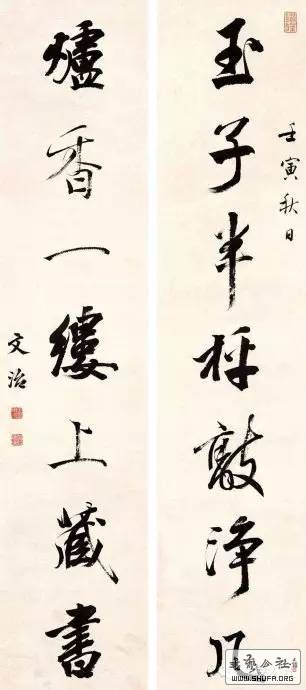 壬寅秋日
玉子半枰敲淨几
爐香一縷上藏書
文治
書藝公社
WWW.SHUFA.ORG